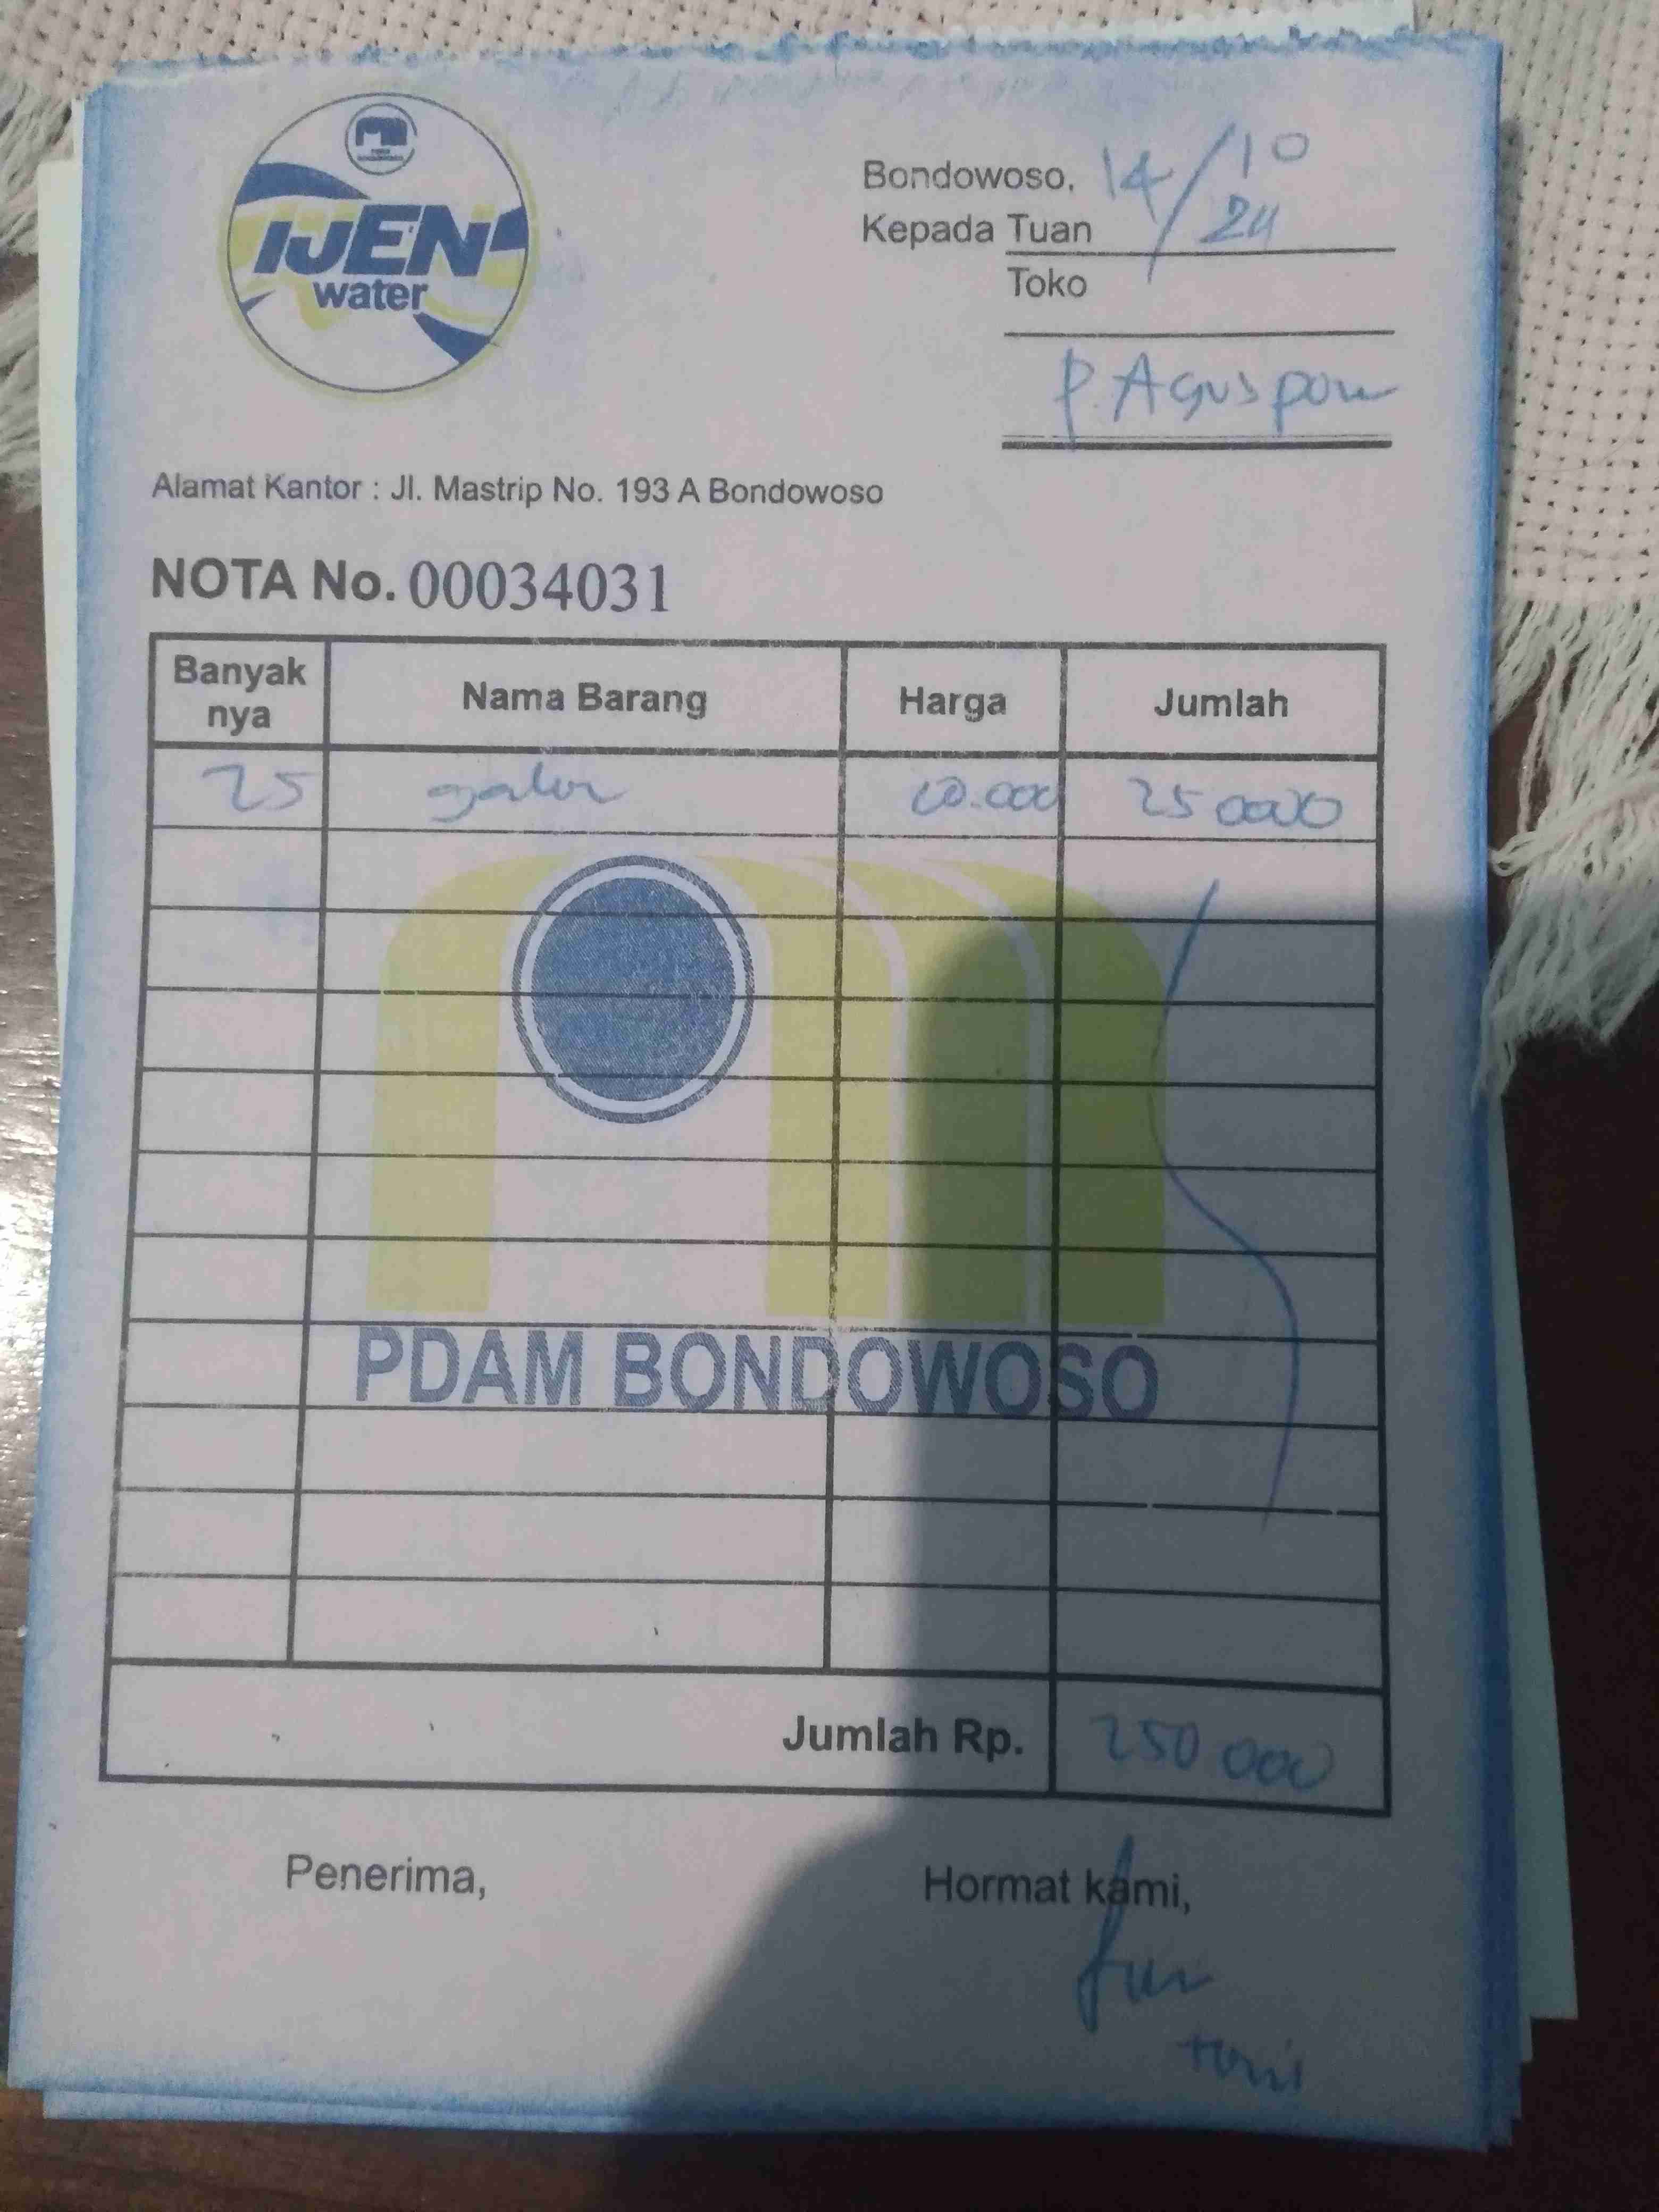 IJEN
water
Bondowoso, 14/10
24
Kepada Tuan
Toko
P. Agus
Alamat Kantor : Jl. Mastrip No. 193 A Bondowoso
NOTA No. 00034031
Banyak nya Nama Barang Harga Jumlah
25 galon 10.000 250000
PDAM BONDOWOSO
Jumlah Rp. 250 000
Penerima, Hormat kami,